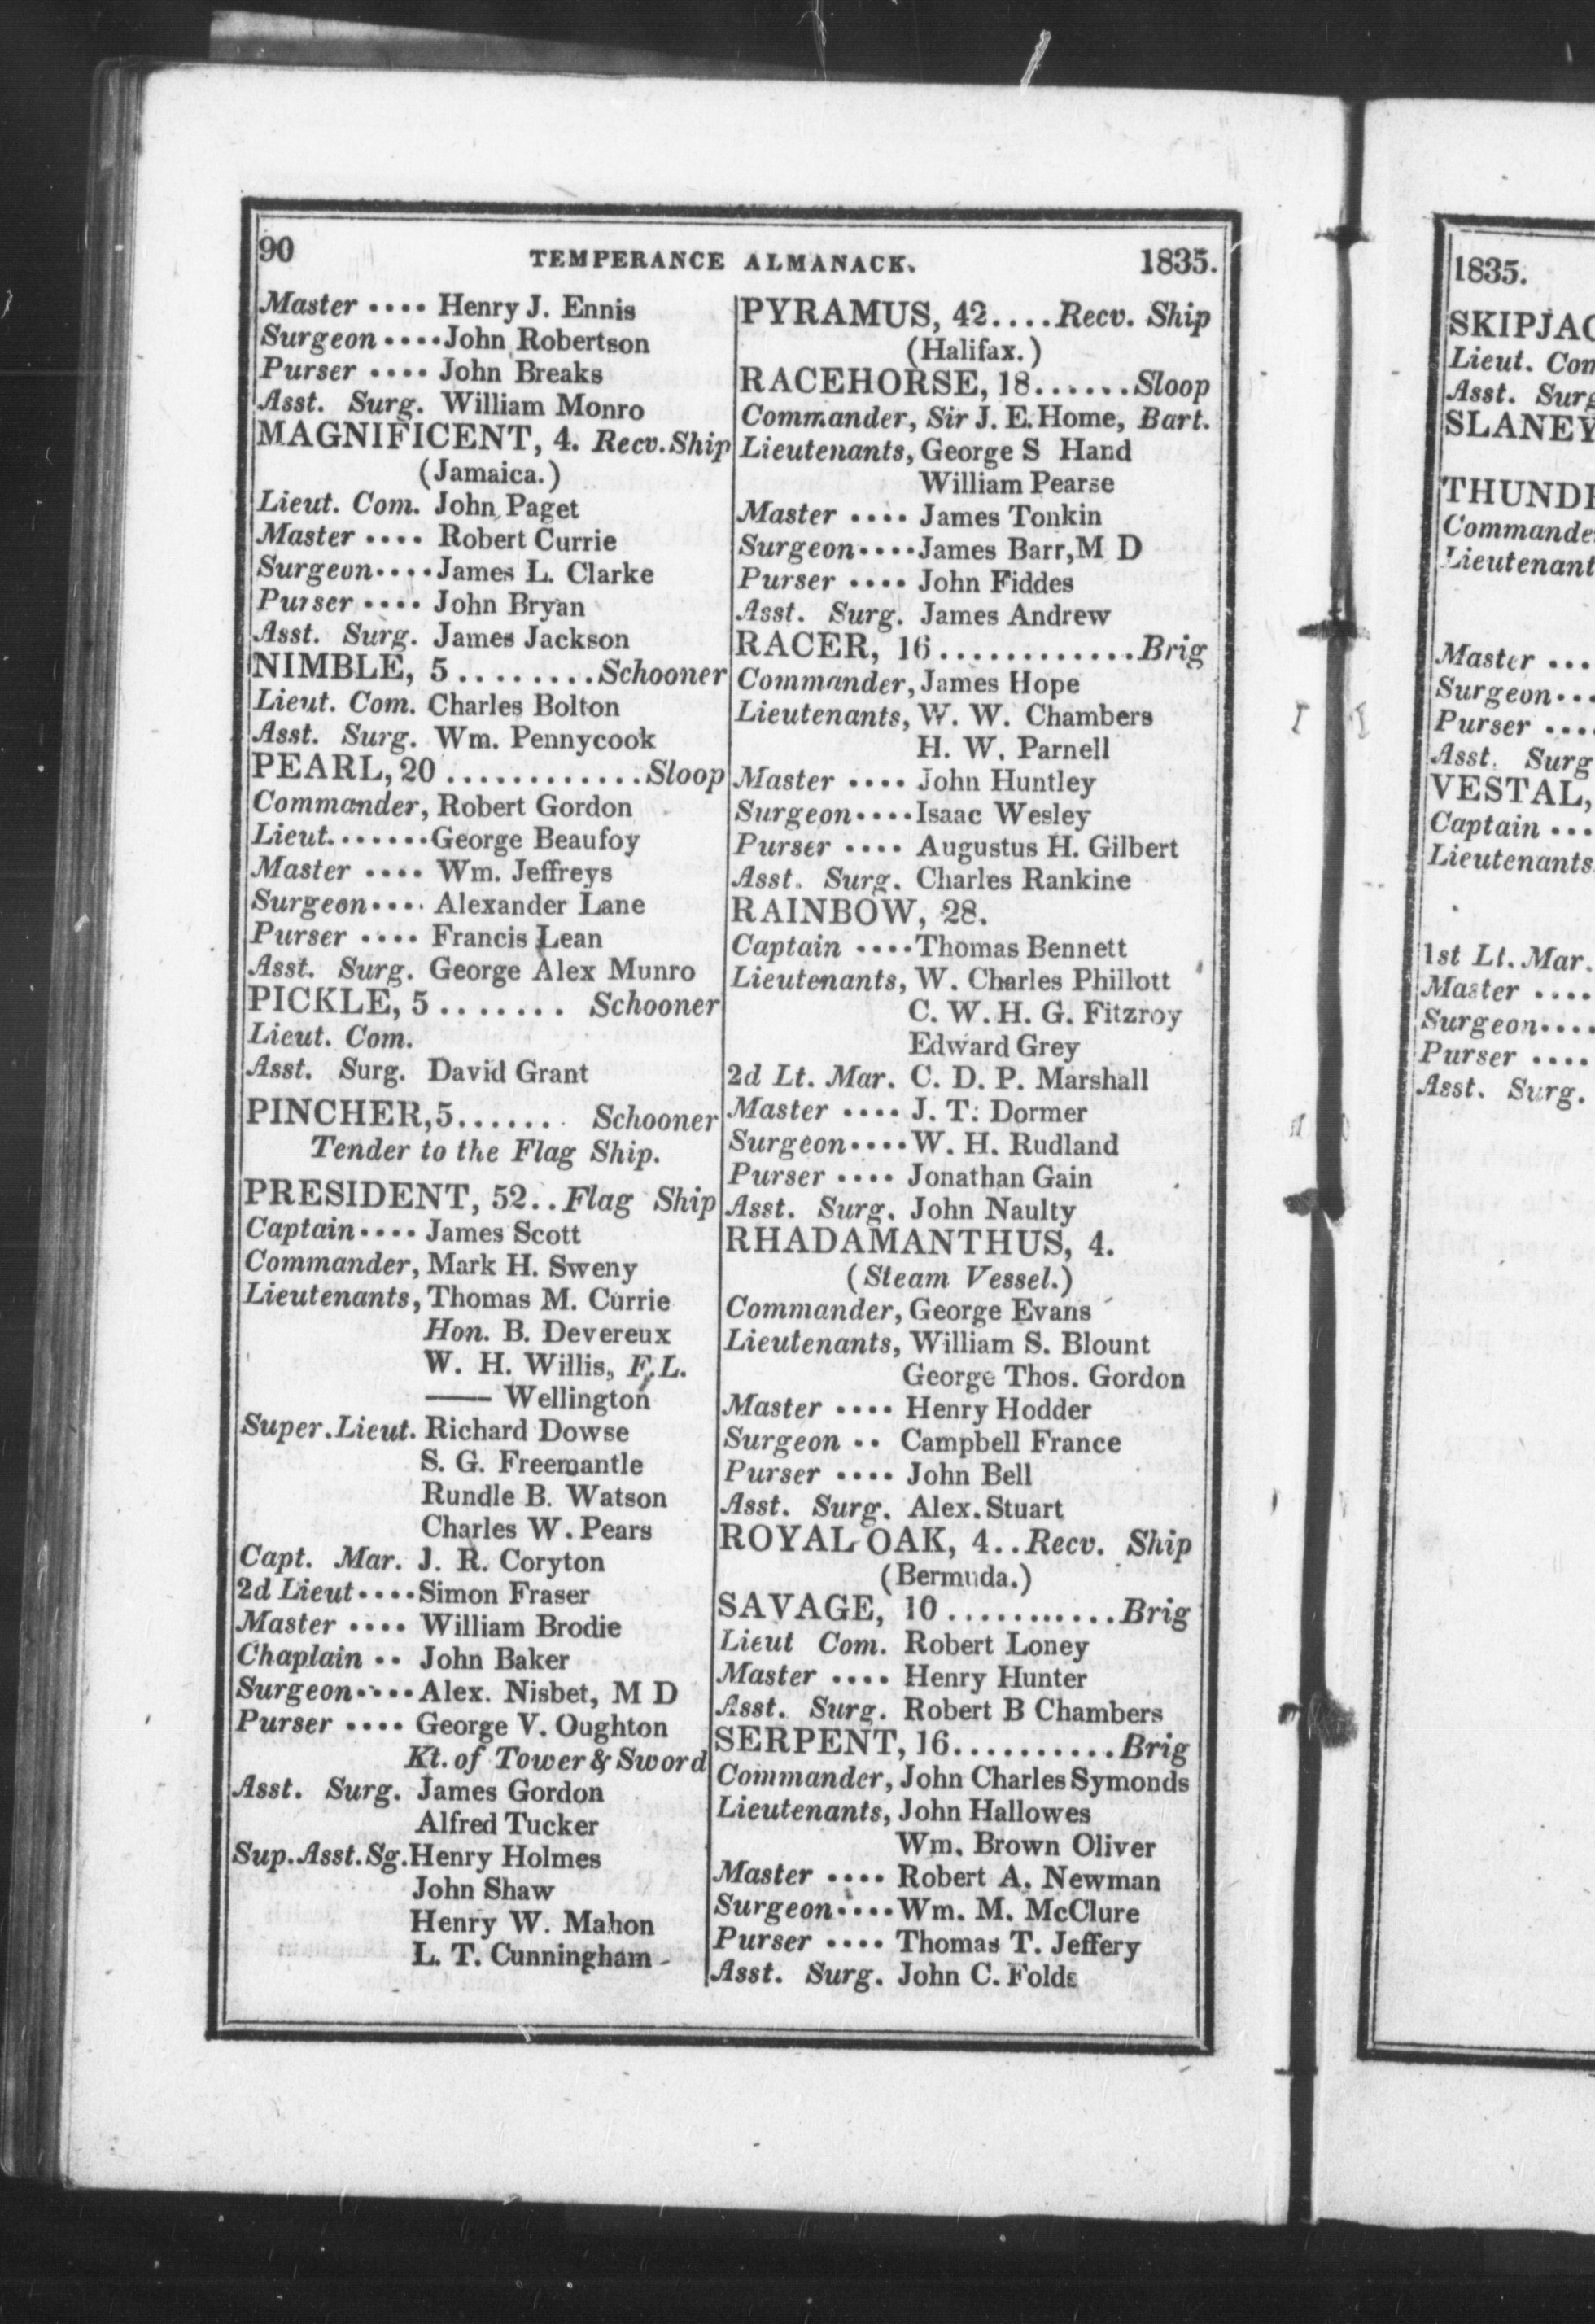 90 TEMPERANCE ALMANACK. 1835.
Master .... Henry J. Ennis
Surgeon .... John Robertson
Purser .... John Breaks
Asst. Surg. William Monro
MAGNIFICENT, 4. Recv. Ship
(Jamaica.)
Lieut. Com. John Paget
Master .... Robert Currie
Surgeon .... James L. Clarke
Purser .... John Bryan
Asst. Surg. James Jackson
NIMBLE, 5 ........ Schooner
Lieut. Com. Charles Bolton
Asst. Surg. Wm. Pennycook
PEARL, 20 ............ Sloop
Commander, Robert Gordon
Lieut. ...... George Beaufoy
Master .... Wm. Jeffreys
Surgeon .... Alexander Lane
Purser .... Francis Lean
Asst. Surg. George Alex Munro
PICKLE, 5 ....... Schooner
Lieut. Com.
Asst. Surg. David Grant
PINCHER, 5 ....... Schooner
Tender to the Flag Ship.
PRESIDENT, 52.. Flag Ship
Captain .... James Scott
Commander, Mark H. Sweny
Lieutenants, Thomas M. Currie
Hon. B. Devereux
W. H. Willis, F.L.
—— Wellington
Super. Lieut. Richard Dowse
S. G. Freemantle
Rundle B. Watson
Charles W. Pears
Capt. Mar. J. R. Coryton
2d Lieut .... Simon Fraser
Master .... William Brodie
Chaplain .. John Baker
Surgeon .... Alex. Nisbet, M D
Purser .... George V. Oughton
Kt. of Tower & Sword
Asst. Surg. James Gordon
Alfred Tucker
Sup. Asst. Sg. Henry Holmes
John Shaw
Henry W. Mahon
L. T. Cunningham
PYRAMUS, 42.... Recv. Ship
(Halifax.)
RACEHORSE, 18...... Sloop
Commander, Sir J. E. Home, Bart.
Lieutenants, George S Hand
William Pearse
Master .... James Tonkin
Surgeon .... James Barr, M D
Purser .... John Fiddes
Asst. Surg. James Andrew
RACER, 16 ............ Brig
Commander, James Hope
Lieutenants, W. W. Chambers
H. W. Parnell
Master .... John Huntley
Surgeon .... Isaac Wesley
Purser .... Augustus H. Gilbert
Asst. Surg. Charles Rankine
RAINBOW, 28.
Captain .... Thomas Bennett
Lieutenants, W. Charles Phillott
C. W. H. G. Fitzroy
Edward Grey
2d Lt. Mar. C. D. P. Marshall
Master .... J. T. Dormer
Surgeon .... W. H. Rudland
Purser .... Jonathan Gain
Asst. Surg. John Naulty
RHADAMANTHUS, 4.
(Steam Vessel.)
Commander, George Evans
Lieutenants, William S. Blount
George Thos. Gordon
Master .... Henry Hodder
Surgeon .. Campbell France
Purser .... John Bell
Asst. Surg. Alex. Stuart
ROYAL OAK, 4.. Recv. Ship
(Bermuda.)
SAVAGE, 10 .......... Brig
Lieut Com. Robert Loney
Master .... Henry Hunter
Asst. Surg. Robert B Chambers
SERPENT, 16.......... Brig
Commander, John Charles Symonds
Lieutenants, John Hallowes
Wm. Brown Oliver
Master .... Robert A. Newman
Surgeon .... Wm. M. McClure
Purser .... Thomas T. Jeffery
Asst. Surg. John C. Folds
1835.
SKIPJAC
Lieut. Com
Asst. Surg
SLANEY
THUND
Commande
Lieutenant
Master ...
Surgeon ...
Purser ....
Asst. Surg
VESTAL,
Captain ...
Lieutenants
1st Lt. Mar.
Master ....
Surgeon ....
Purser ....
Asst. Surg.